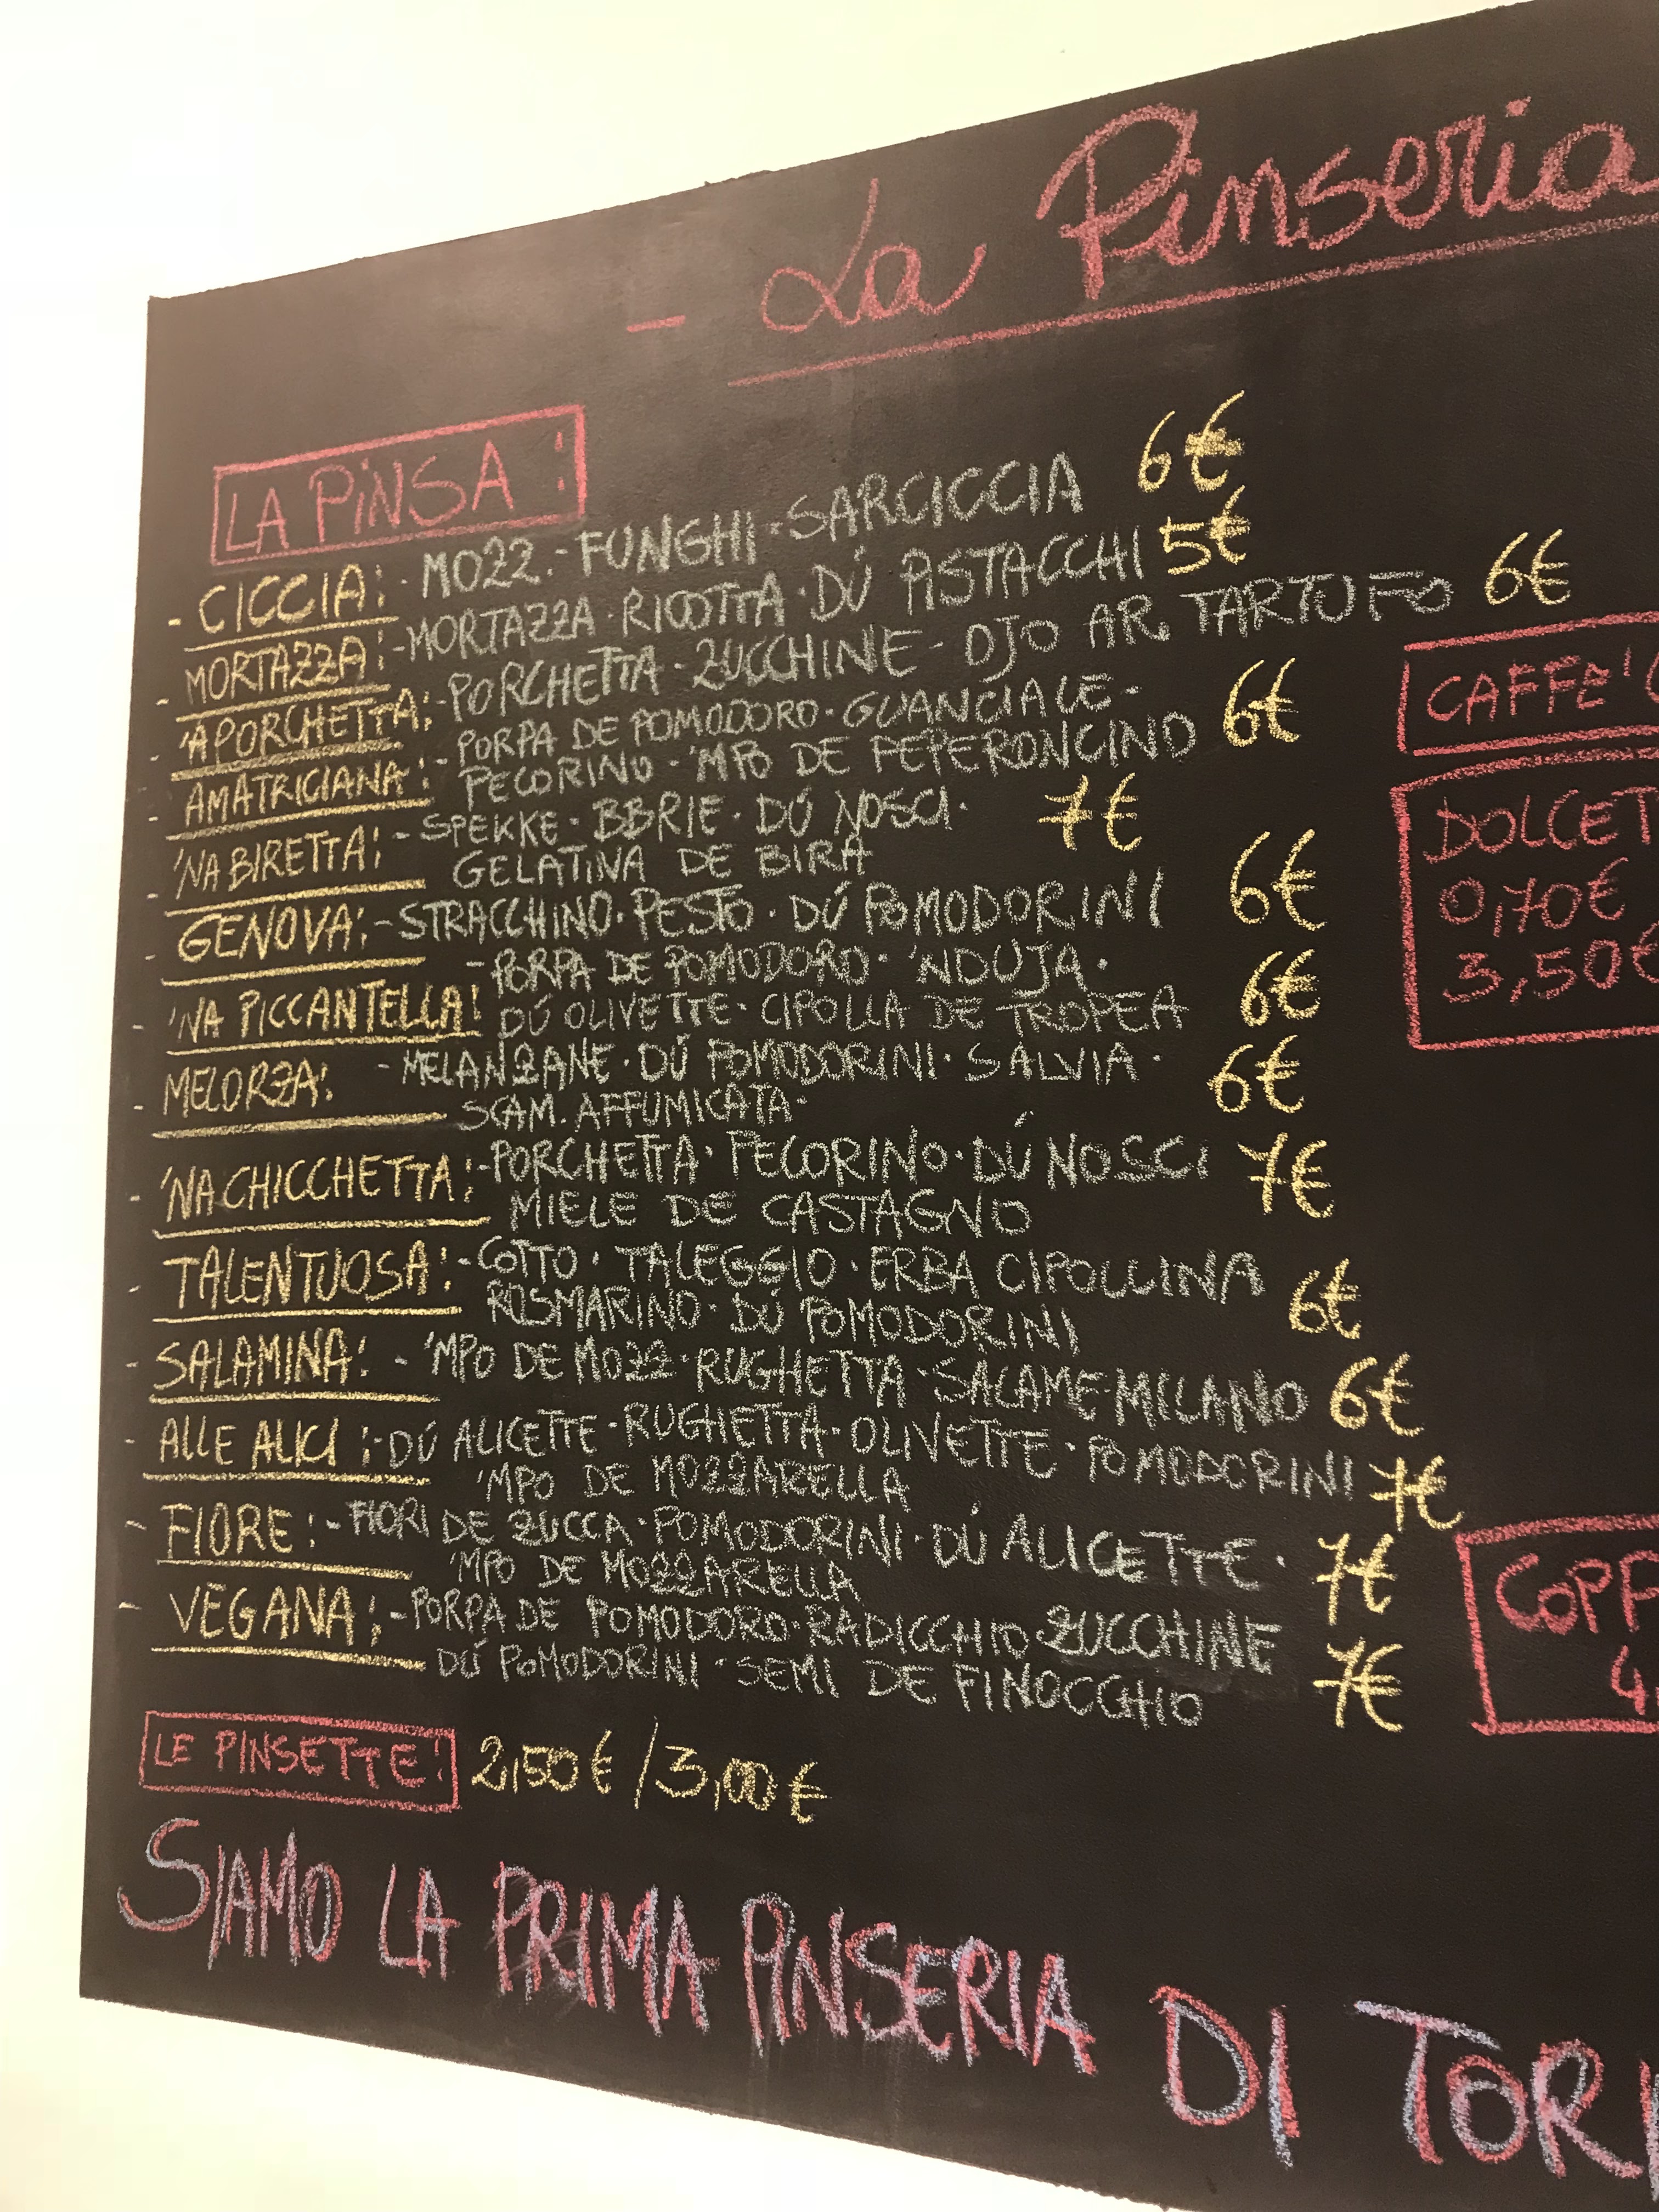 - La Pinseria
LA PINSA:
- CICCIA: - MOZZ. - FUNGHI - SARCICCIA 6€
- MORTAZZA: - MORTAZZA · RICOTTA · DÚ PISTACCHI 5€
- 'A PORCHETTA: - PORCHETTA - ZUCCHINE - OJO AR TARTUFO 6€
- AMATRICIANA: - PORPA DE POMODORO · GUANCIALE -
PECORINO - 'MPO DE PEPERONCINO 6€
- 'NA BIRETTA: - SPEKKE · BBRIE · DÚ NOSCI · 7€
GELATINA DE BIRA
- GENOVA: - STRACCHINO · PESTO · DÚ POMODORINI 6€
- 'NA PICCANTELLA: - PORPA DE POMODORO · 'NDUJA ·
DÚ OLIVETTE · CIPOLLA DE TROPEA 6€
- MELORZA: - MELANZANE · DÚ POMODORINI · SALVIA · 6€
SCAM. AFFUMICATA ·
- 'NA CHICCHETTA: - PORCHETTA · PECORINO · DÚ NOSCI 7€
MIELE DE CASTAGNO
- TALENTUOSA: - COTTO · TALEGGIO · ERBA CIPOLLINA
ROSMARINO · DÚ POMODORINI 6€
- SALAMINA: - 'MPO DE MOZZ · RUGHETTA · SALAME MILANO 6€
- ALLE ALICI: - DÚ ALICETTE - RUGHETTA · OLIVETTE · POMODORINI 7€
'MPO DE MOZZARELLA
- FIORE: - FIORI DE ZUCCA · POMODORINI · DÚ ALICETTE · 7€
'MPO DE MOZZARELLA
- VEGANA: - PORPA DE POMODORO · RADICCHIO ZUCCHINE
DÚ POMODORINI · SEMI DE FINOCCHIO 7€
LE PINSETTE: 2,50€ / 3,00€
SIAMO LA PRIMA PINSERIA DI TORI
CAFFE'
DOLCET
0,70€
3,50€
COPE
4,